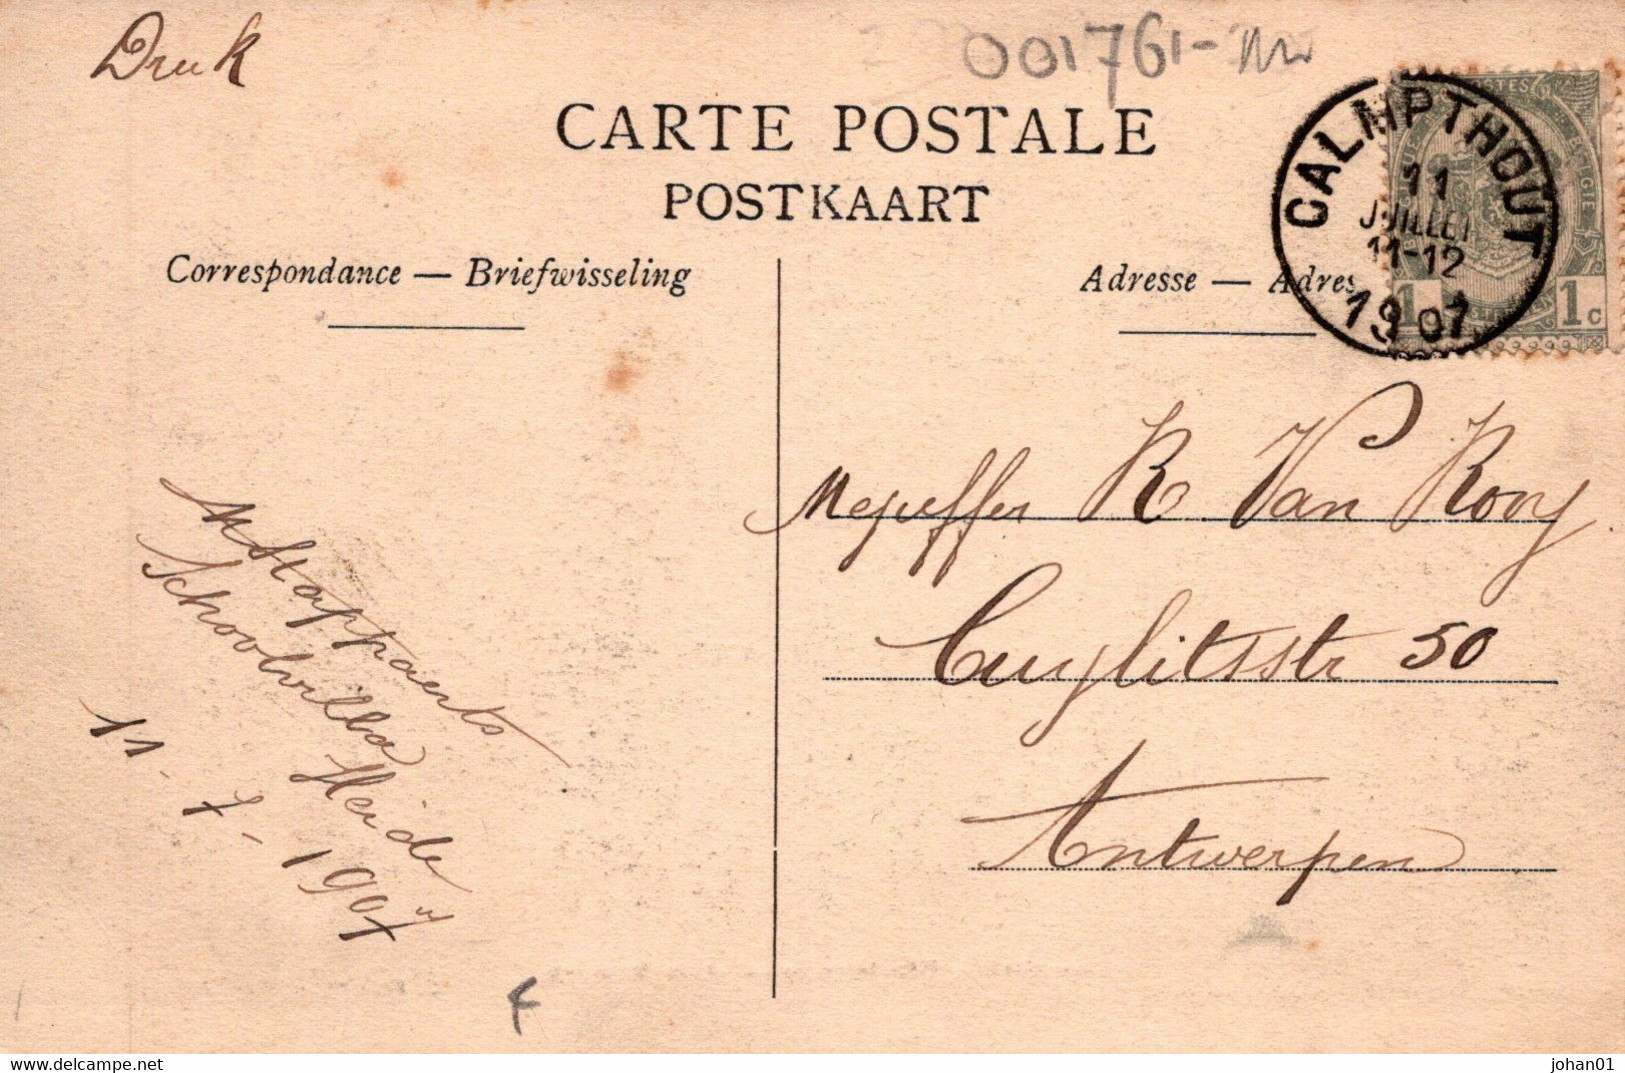 Druk
001761-
CARTE POSTALE
POSTKAART
Correspondance — Briefwisseling
Adresse — Adres
CALMPTHOUT
11
JUILLET
11-12
1907
BELGIE
1 1c
Mejuffer R. Van Rooy
Cuylitsstr 50
Antwerpen
M Stappaerts
Schoolvilla Heide
11-7-1907
Bid.com
johan01